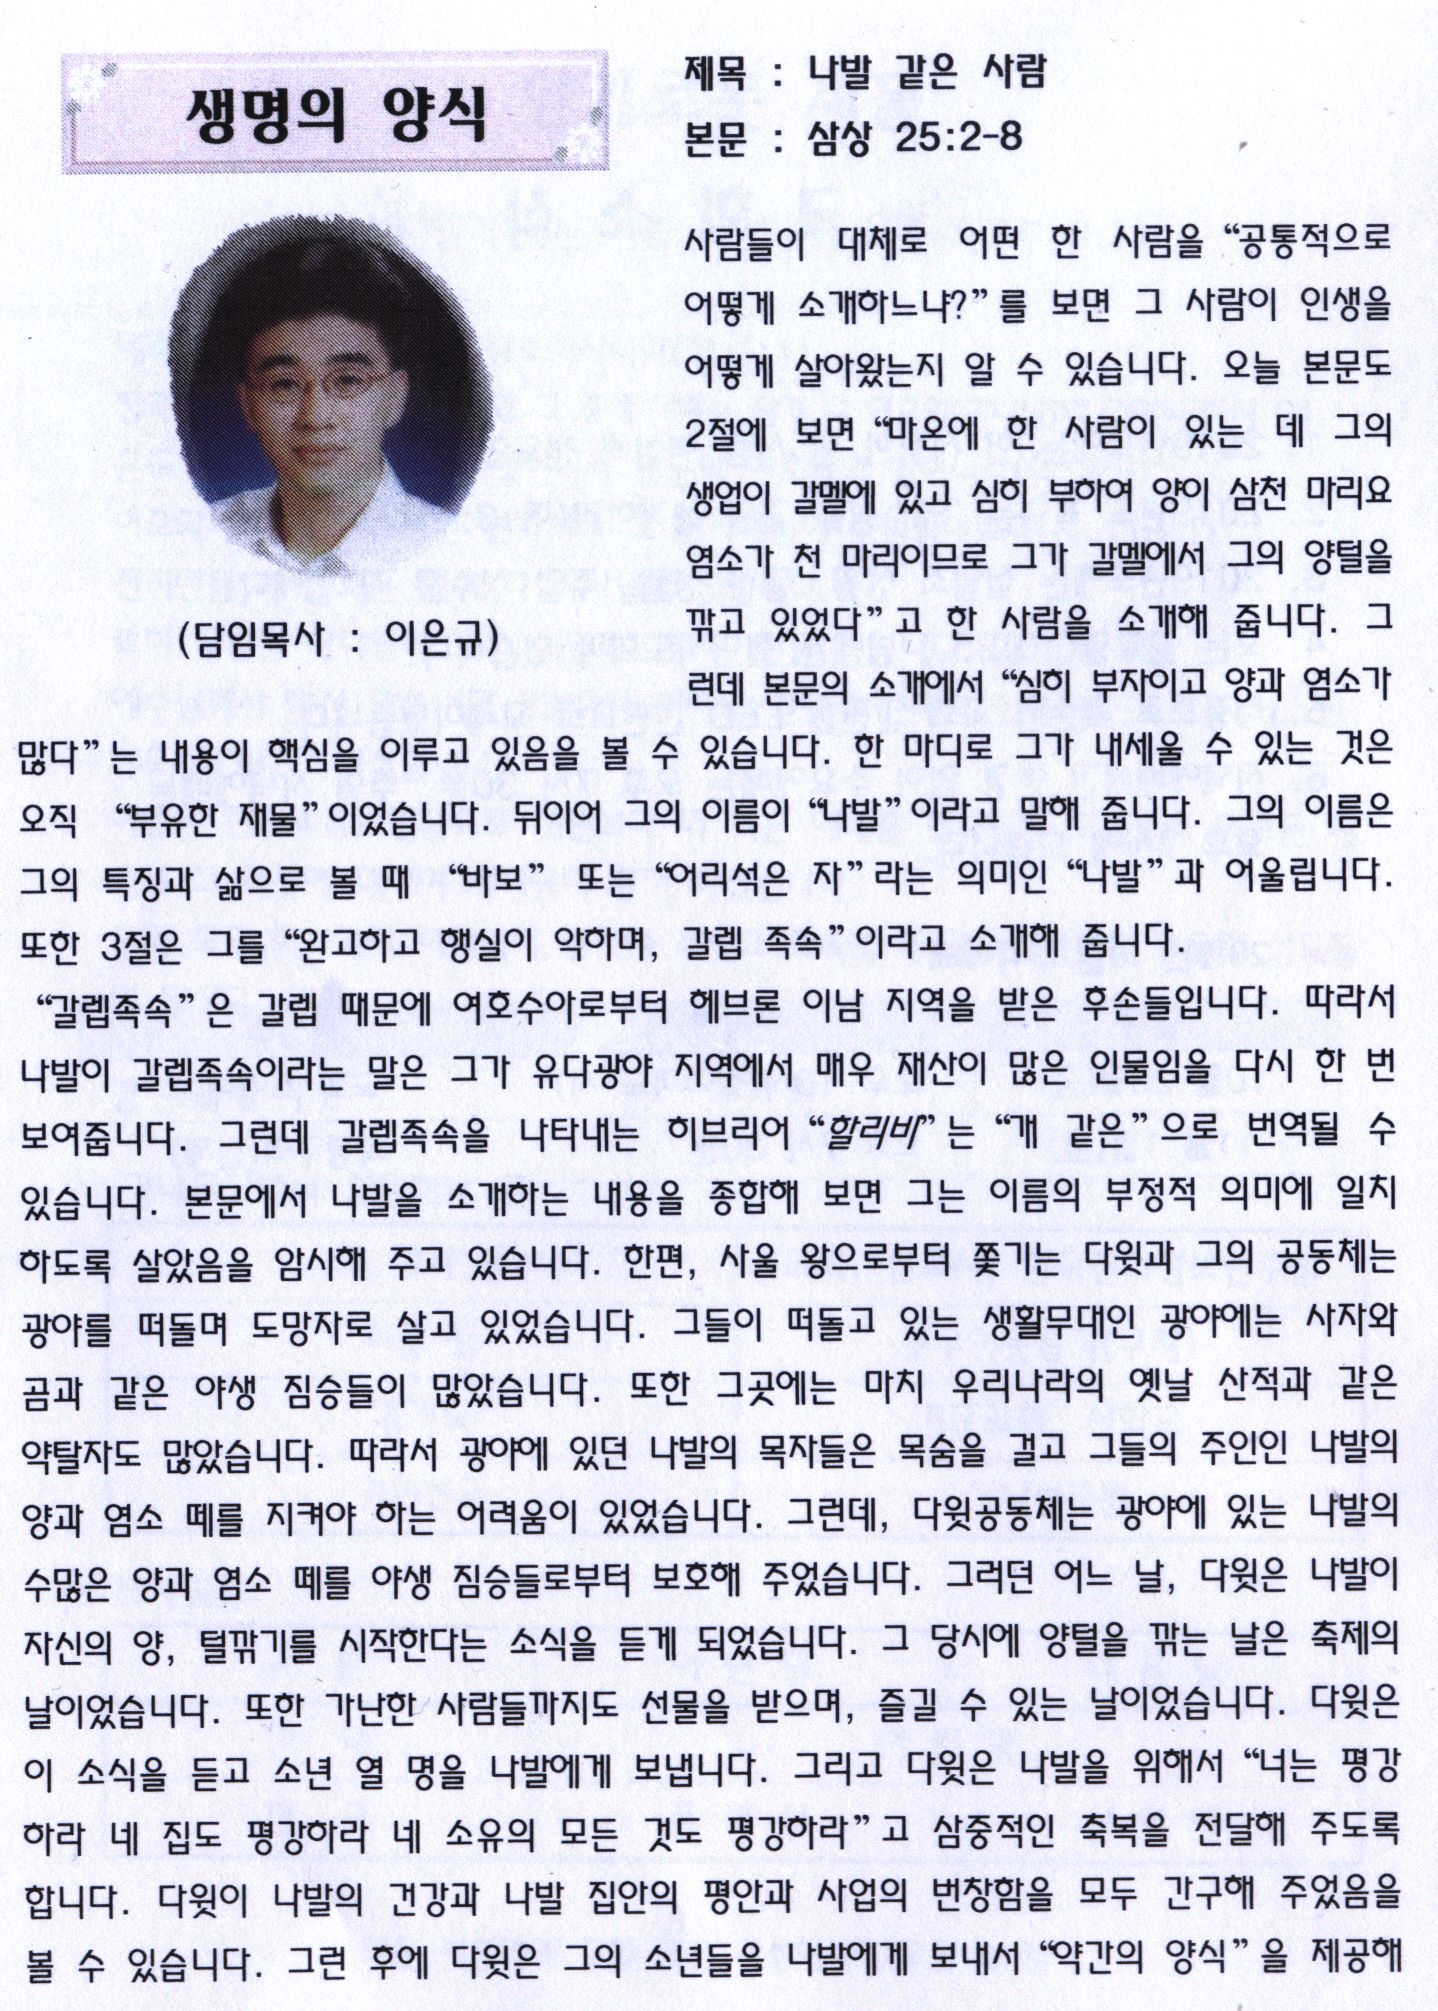 생명의 양식
제목 : 나발 같은 사람
본문 : 삼상 25:2-8
(담임목사 : 이은규)
사람들이 대체로 어떤 한 사람을 “공통적으로
어떻게 소개하느냐?”를 보면 그 사람이 인생을
어떻게 살아왔는지 알 수 있습니다. 오늘 본문도
2절에 보면 “마온에 한 사람이 있는 데 그의
생업이 갈멜에 있고 심히 부하여 양이 삼천 마리요
염소가 천 마리이므로 그가 갈멜에서 그의 양털을
깎고 있었다”고 한 사람을 소개해 줍니다. 그
런데 본문의 소개에서 “심히 부자이고 양과 염소가
많다”는 내용이 핵심을 이루고 있음을 볼 수 있습니다. 한 마디로 그가 내세울 수 있는 것은
오직 “부유한 재물”이었습니다. 뒤이어 그의 이름이 “나발”이라고 말해 줍니다. 그의 이름은
그의 특징과 삶으로 볼 때 “바보” 또는 “어리석은 자”라는 의미인 “나발”과 어울립니다.
또한 3절은 그를 “완고하고 행실이 악하며, 갈렙 족속”이라고 소개해 줍니다.
“갈렙족속”은 갈렙 때문에 여호수아로부터 헤브론 이남 지역을 받은 후손들입니다. 따라서
나발이 갈렙족속이라는 말은 그가 유다광야 지역에서 매우 재산이 많은 인물임을 다시 한 번
보여줍니다. 그런데 갈렙족속을 나타내는 히브리어 “할리비”는 “개 같은”으로 번역될 수
있습니다. 본문에서 나발을 소개하는 내용을 종합해 보면 그는 이름의 부정적 의미에 일치
하도록 살았음을 암시해 주고 있습니다. 한편, 사울 왕으로부터 쫓기는 다윗과 그의 공동체는
광야를 떠돌며 도망자로 살고 있었습니다. 그들이 떠돌고 있는 생활무대인 광야에는 사자와
곰과 같은 야생 짐승들이 많았습니다. 또한 그곳에는 마치 우리나라의 옛날 산적과 같은
약탈자도 많았습니다. 따라서 광야에 있던 나발의 목자들은 목숨을 걸고 그들의 주인인 나발의
양과 염소 떼를 지켜야 하는 어려움이 있었습니다. 그런데, 다윗공동체는 광야에 있는 나발의
수많은 양과 염소 떼를 야생 짐승들로부터 보호해 주었습니다. 그러던 어느 날, 다윗은 나발이
자신의 양, 털깎기를 시작한다는 소식을 듣게 되었습니다. 그 당시에 양털을 깎는 날은 축제의
날이었습니다. 또한 가난한 사람들까지도 선물을 받으며, 즐길 수 있는 날이었습니다. 다윗은
이 소식을 듣고 소년 열 명을 나발에게 보냅니다. 그리고 다윗은 나발을 위해서 “너는 평강
하라 네 집도 평강하라 네 소유의 모든 것도 평강하라”고 삼중적인 축복을 전달해 주도록
합니다. 다윗이 나발의 건강과 나발 집안의 평안과 사업의 번창함을 모두 간구해 주었음을
볼 수 있습니다. 그런 후에 다윗은 그의 소년들을 나발에게 보내서 “약간의 양식”을 제공해